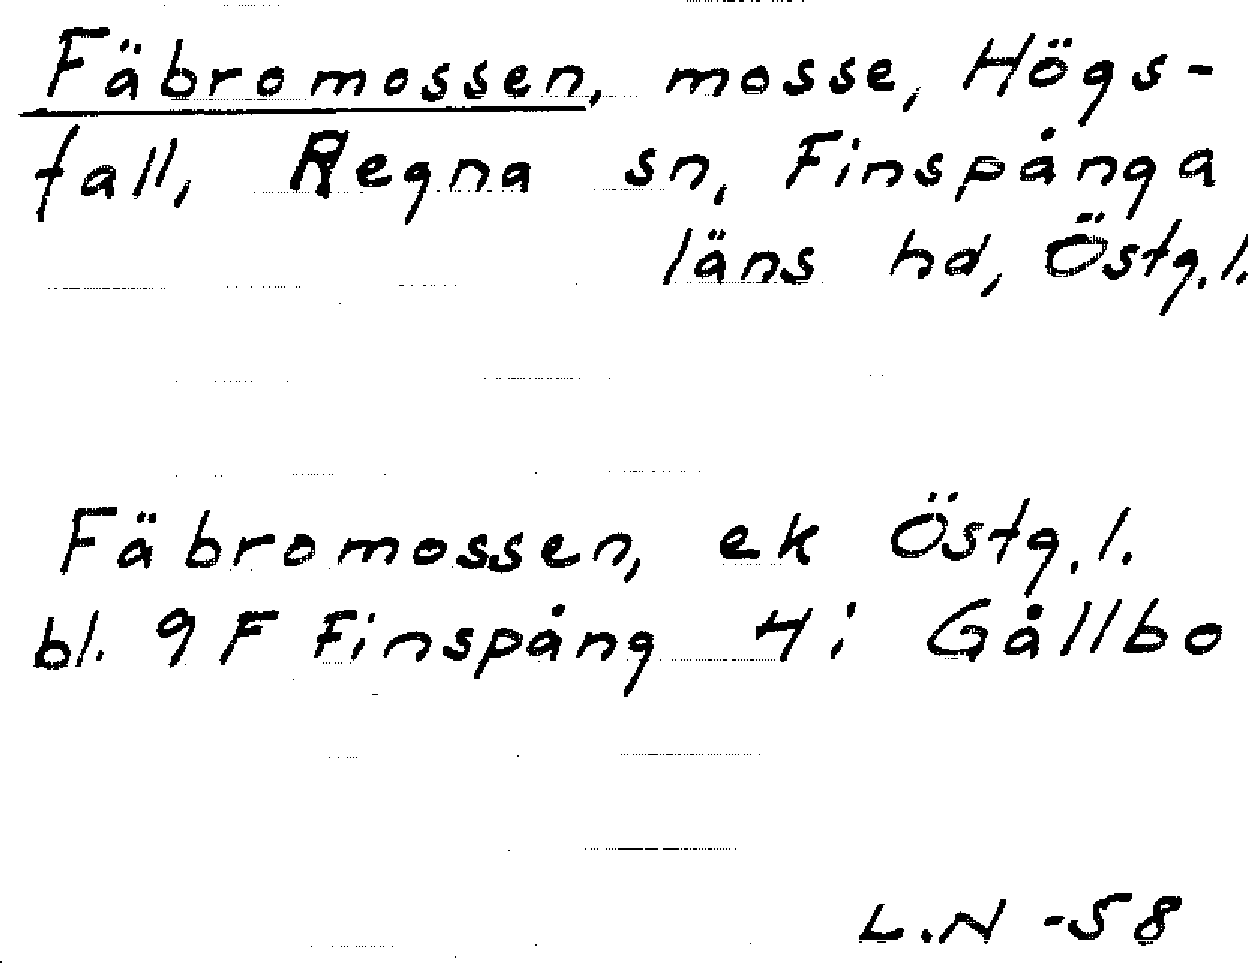 Fäbromossen, mosse, Högs-
fall, Regna sn, Finspånga
läns hd, Östg.l.
Fäbromossen, ek Östg.l.
bl. 9 F Finspång 4 i Gållbo
L.N -58